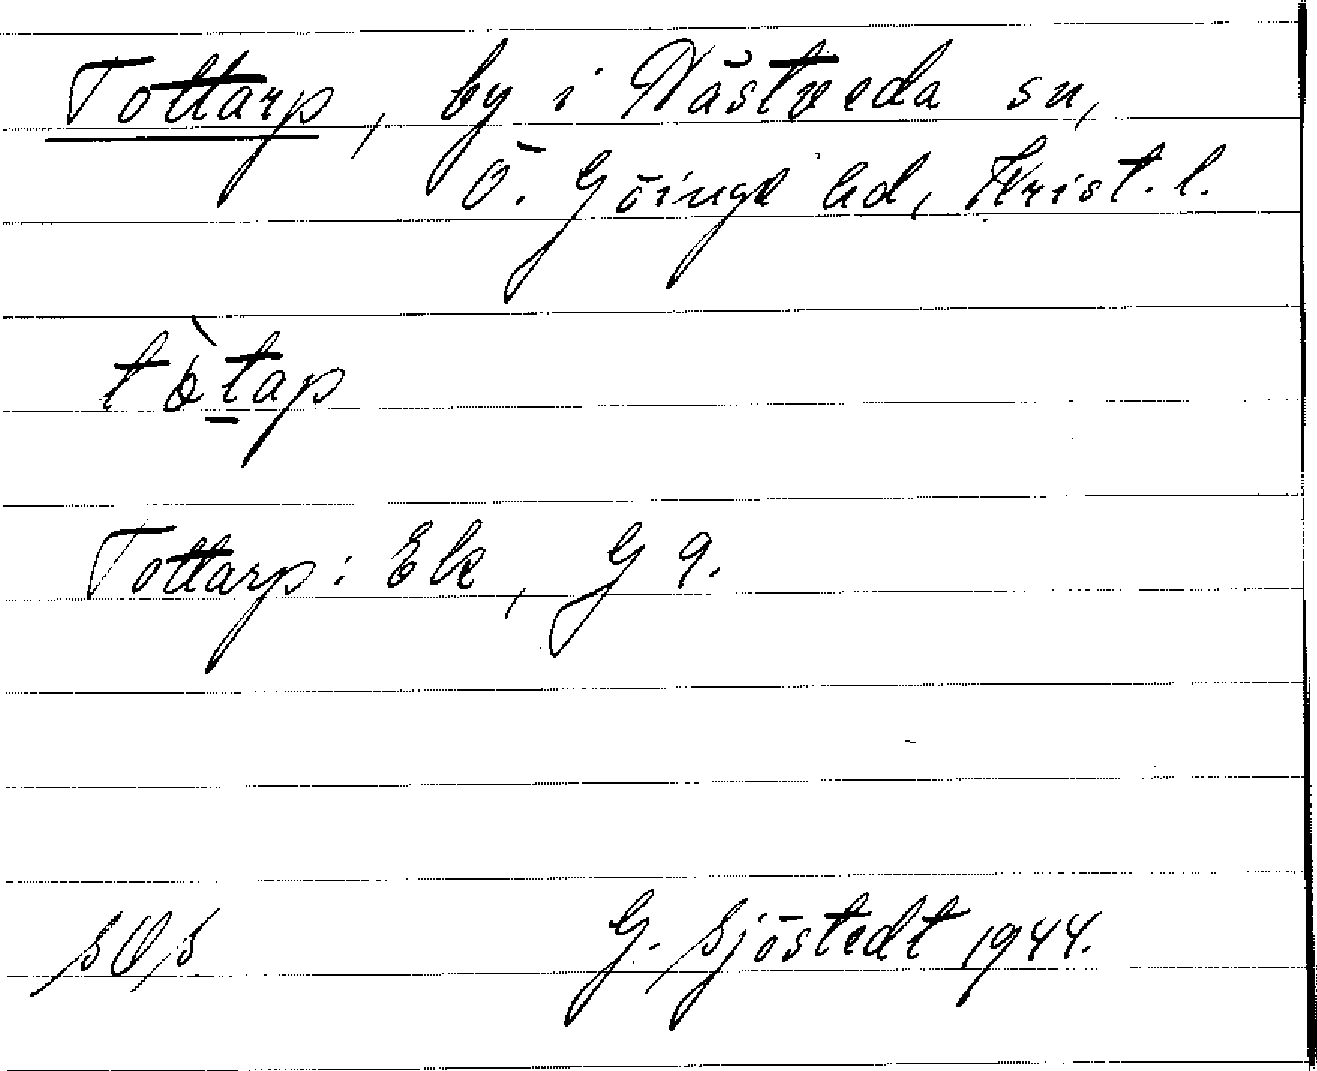 Tottarp, by i Nästveda sn,
Ö. Göinge hd, Krist. l.
tòtap
Tottarp: Ek, G 9.
G. Sjöstedt 1944.